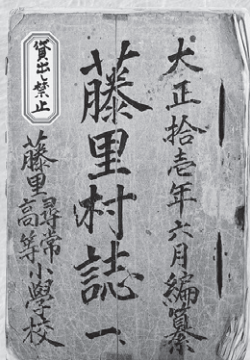 大正拾壱年六月編纂
藤里村誌 一、
貸出し禁止
藤里尋常
高等小學校